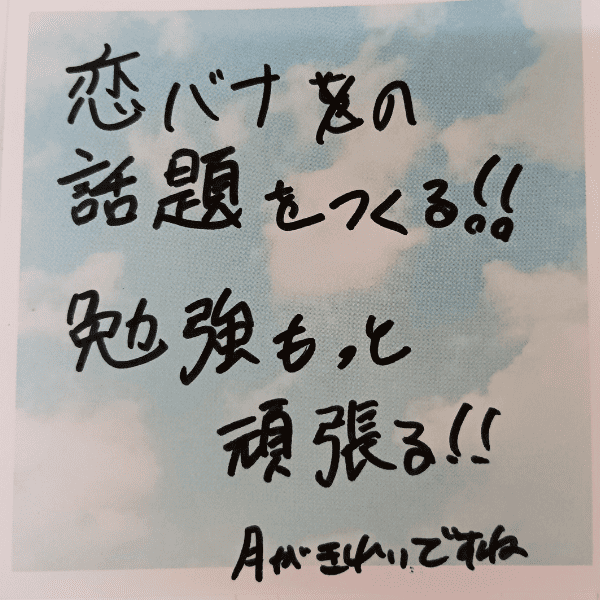 恋バナの
話題をつくる!!
勉強もっと
頑張る!!
月がきれいですね